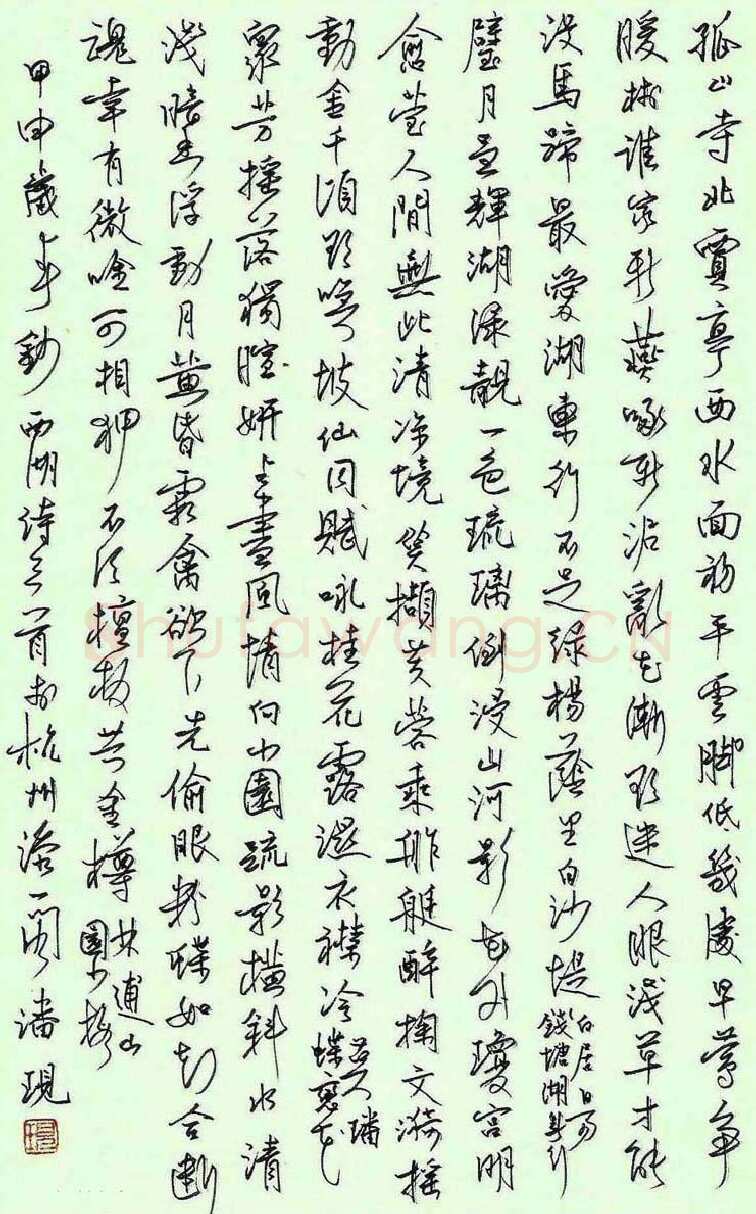 孤山寺北賈亭西水面初平雲腳低幾處早鶯爭
暖樹誰家新燕啄新泥亂花漸欲迷人眼淺草才能
没馬蹄最愛湖東行不足綠楊蔭里白沙堤
白居易
錢塘湖春行
璧月呈輝湖漾靚一色琉璃倒浸山河影花外瓊宮明
愈瑩人間無此清凉境笑擷芙蓉乘舴艋醉掬文漪摇
動金千頃欲唤坡仙同賦咏桂花露濕衣襟冷
莫璠
蝶戀花
衆芳摇落獨暄妍占盡風情向小園疏影橫斜水清
淺暗香浮動月黃昏霜禽欲下先偷眼粉蝶如知合斷
魂幸有微吟可相狎不須檀板共金樽
林逋山
園小梅
甲申歲鈔西湖詩三首於杭州一閣潘現
Shufawang.CN